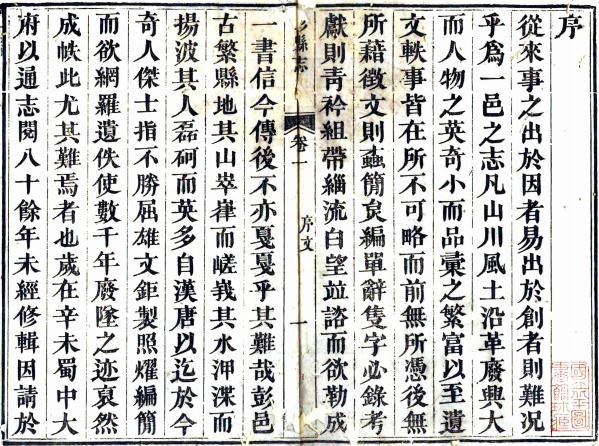 序
從來事之出於因者易出於創者則難況
乎爲一邑之志凡山川風土沿革廢興大
而人物之英奇小而品彙之繁富以至遺
文軼事皆在所不可略而前無所憑後無
所藉徵文則蟲簡㡃編單辭隻字必錄考
獻則靑衿組帶緇流白望竝諮而欲勒成
彭縣志
卷一
序文
一
一書信今傳後不亦戛戛乎其難哉彭邑
古繁縣地其山崒嵂而嵯峩其水㳌渫而
揚波其人磊砢而英多自漢唐以迄於今
奇人傑士指不勝屈雄文鉅製照燿編簡
而欲網羅遺佚使數千年廢墜之迹裒然
成帙此尤其難焉者也歲在辛未蜀中大
府以通志閱八十餘年未經修輯因請於